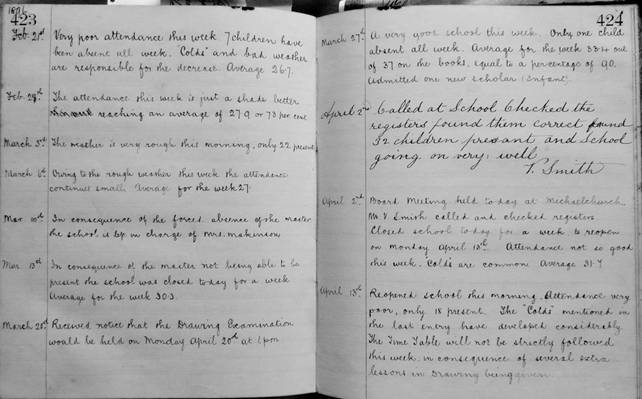 1896
423
Feb. 21st Very poor attendance this week 7 children have
been absent all week. "Colds" and bad weather
are responsible for the decrease. Average 26.7.
Feb. 28th The attendance this week is just a shade better
reaching an average of 27.9 or 73 per cent
March 3rd The weather is very rough this morning, only 22 present
March 6th Owing to the rough weather this week the attendance
continues small. Average for the week 27.
Mar. 10th In consequence of the forced absence of the master
the school is left in charge of Mrs. Makinson.
Mar. 13th In consequence of the master not being able to be
present the school was closed today for a week
Average for the week 30.3.
March 25th Received notice that the Drawing Examination
would be held on Monday April 20th at 1 pm
424
March 27th A very good school this week. Only one child
absent all week. Average for the week 33.4 out
of 37 on the books, equal to a percentage of 90.
Admitted one new scholar (Infant).
April 2nd Called at School Checked the
registers found them correct found
32 children present and School
going on very well
V. Smith
April 2nd Board Meeting held today at Michaelchurch
Mr V Smith called and checked registers
Closed school today for a week, to reopen
on Monday April 13th. Attendance not so good
this week. Colds are common Average 31.7
April 13th Reopened school this morning. Attendance very
poor, only 18 present. The "Colds" mentioned in
the last entry have developed considerably.
The Time Table will not be strictly followed
this week in consequence of several extra
lessons in Drawing being given.